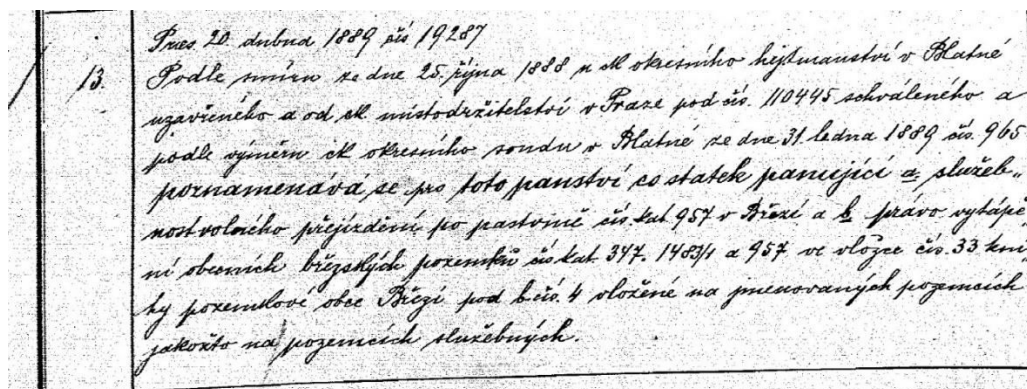 Praes. 20. dubna 1889 čís 19287
13. Podle smíru ze dne 25. října 1888 u ck okresního hejtmanství v Blatné
uzavřeného a od ck místodržitelství v Praze pod čís. 110445 schváleného a
podle výměru ck okresního soudu v Blatné ze dne 31. ledna 1889 čís. 965
poznamenává se pro toto panství co statek panující a, služeb„
nost volného přejíždění po pastvině čís. kat 957 v Březí a b právo vytápě„
ní obecních březských pozemků čís kat. 347. 1483/1 a 957 ve vložce čís. 33 kni„
hy pozemkové obce Březí pod b. čís. 4 vložené na jmenovaných pozemcích
jakožto na pozemcích služebných.